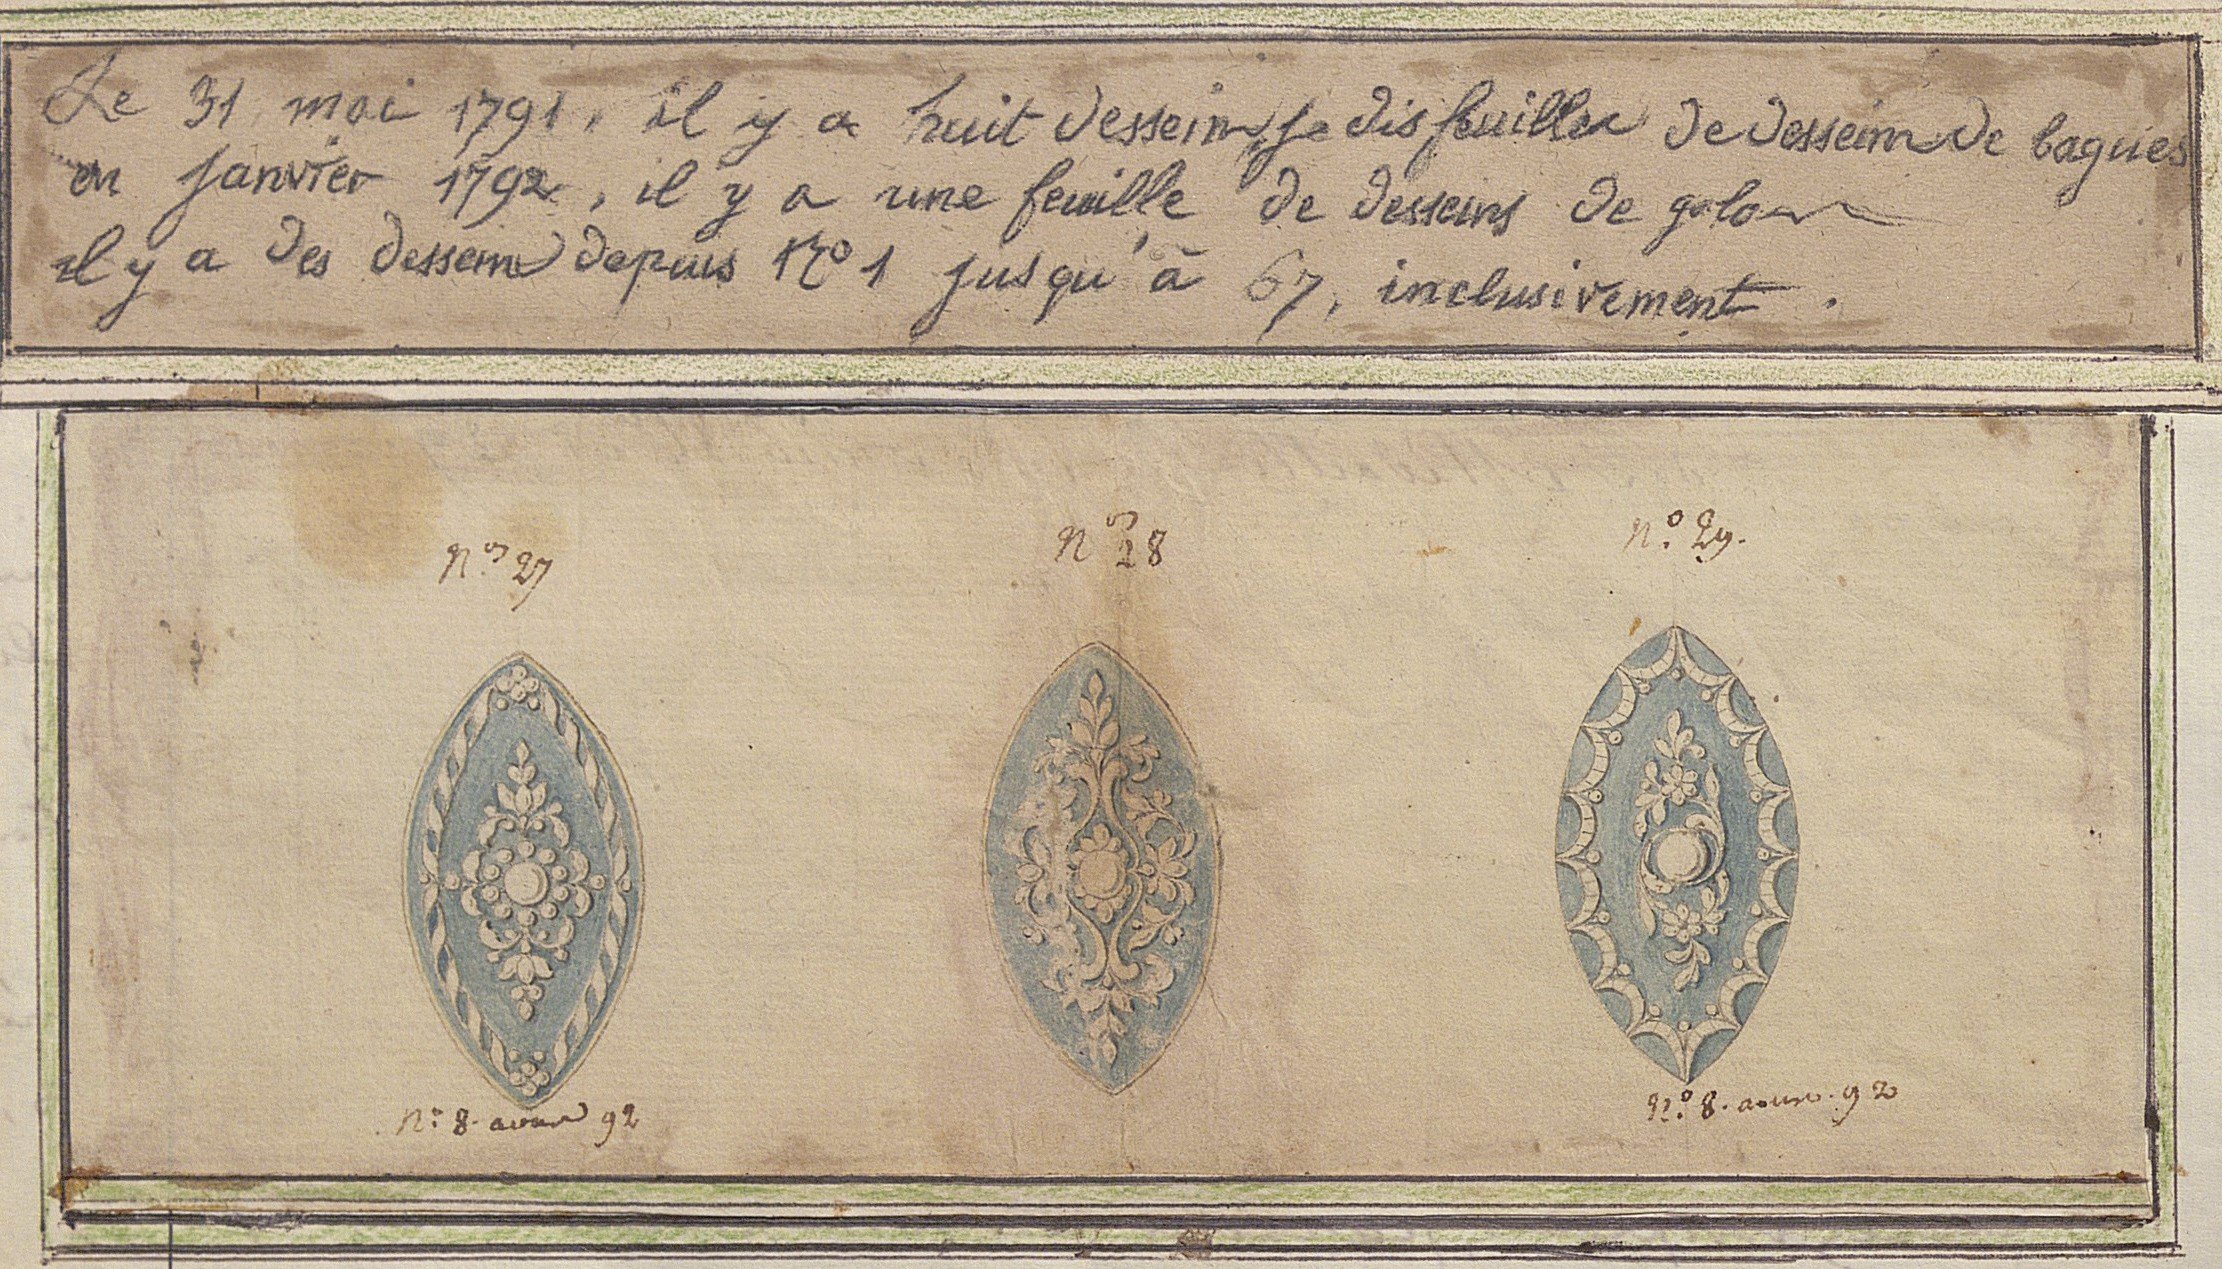 Le 31 mai 1791, il y a huit desseins, je dis feuilles de desseins de bagues
en janvier 1792, il y a une feuille de desseins de galon
il y a des desseins depuis N° 1 jusqu'à 67, inclusivement.
N.° 27
N° 28
N.° 29.
N.° 8. 92
N.° 8. 92